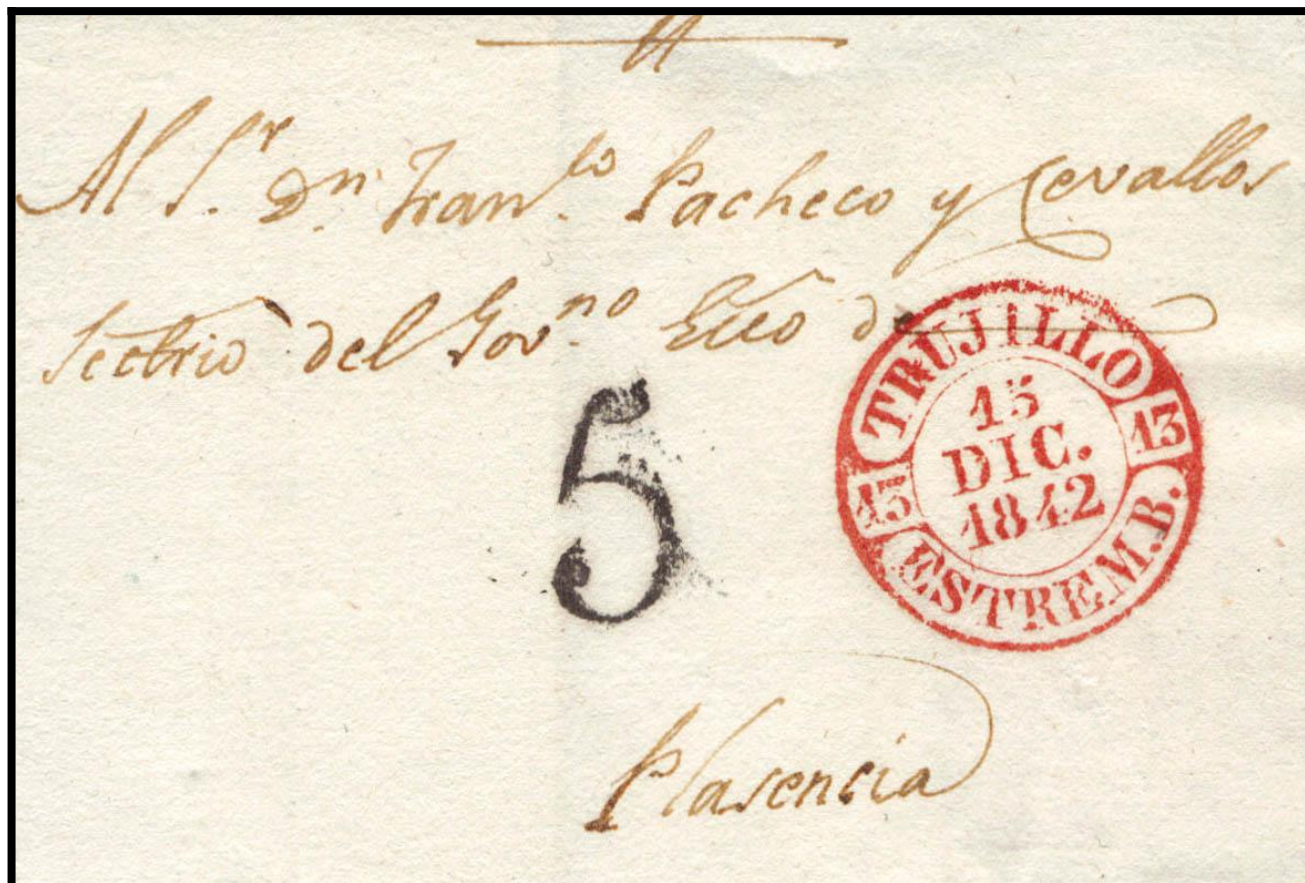 Al S.r D.n Fran.co Pacheco y Cevallos
Secrio del Gov.no Ecco de
5
TRUJILLO
13 13
15
DIC.
1842
ESTREM.B.
Plasencia